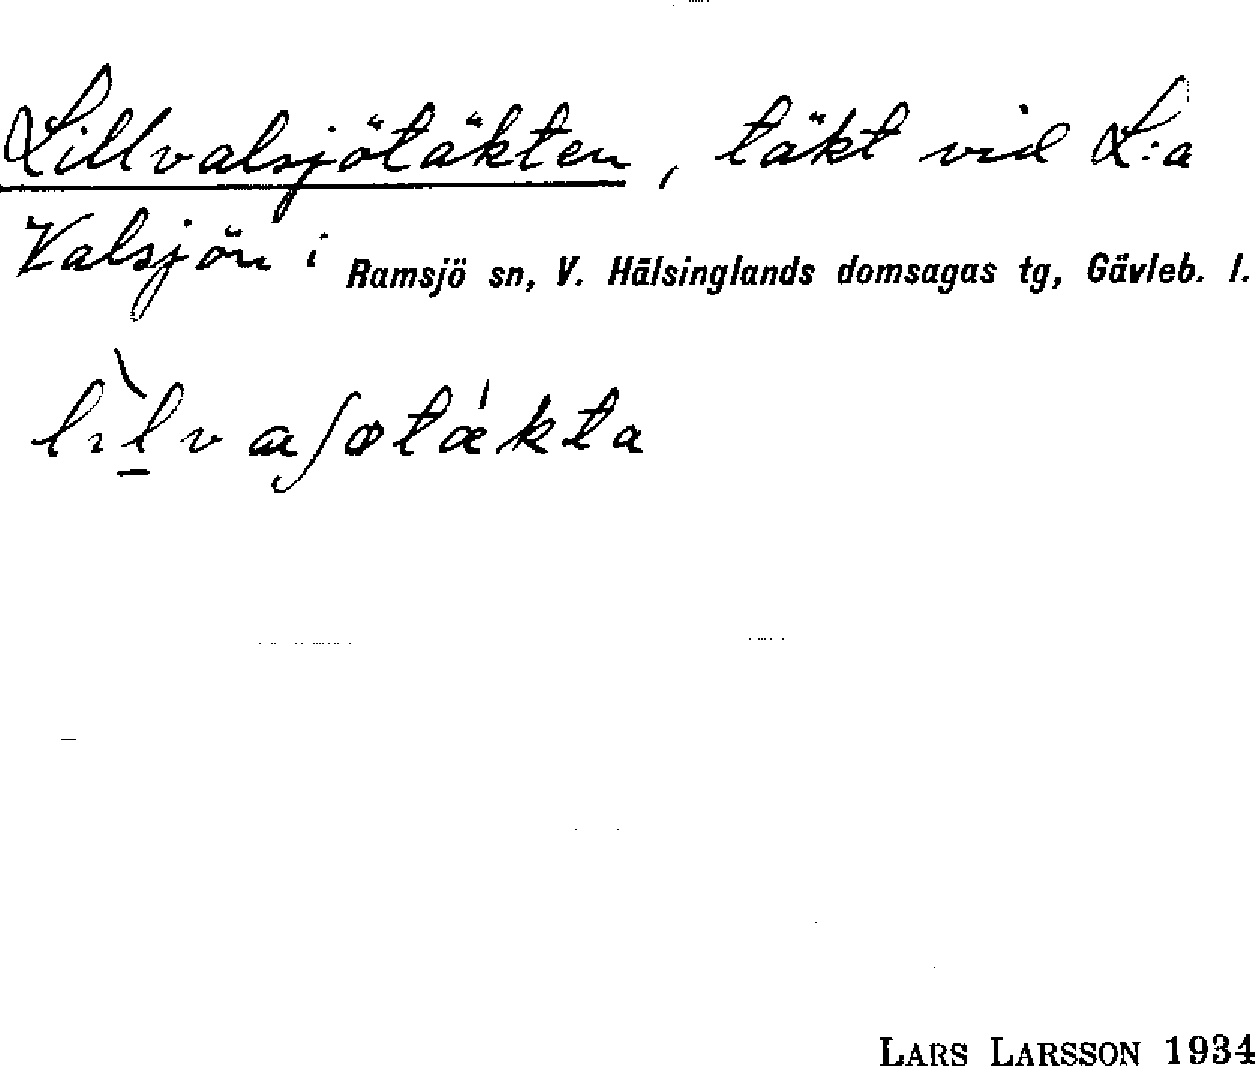 Lillvalsjötäkten, täkt vid L:a
Valsjön i Ramsjö sn, V. Hälsinglands domsagas tg, Gävleb. l.
lılvaʃøtækta
LARS LARSSON 1934